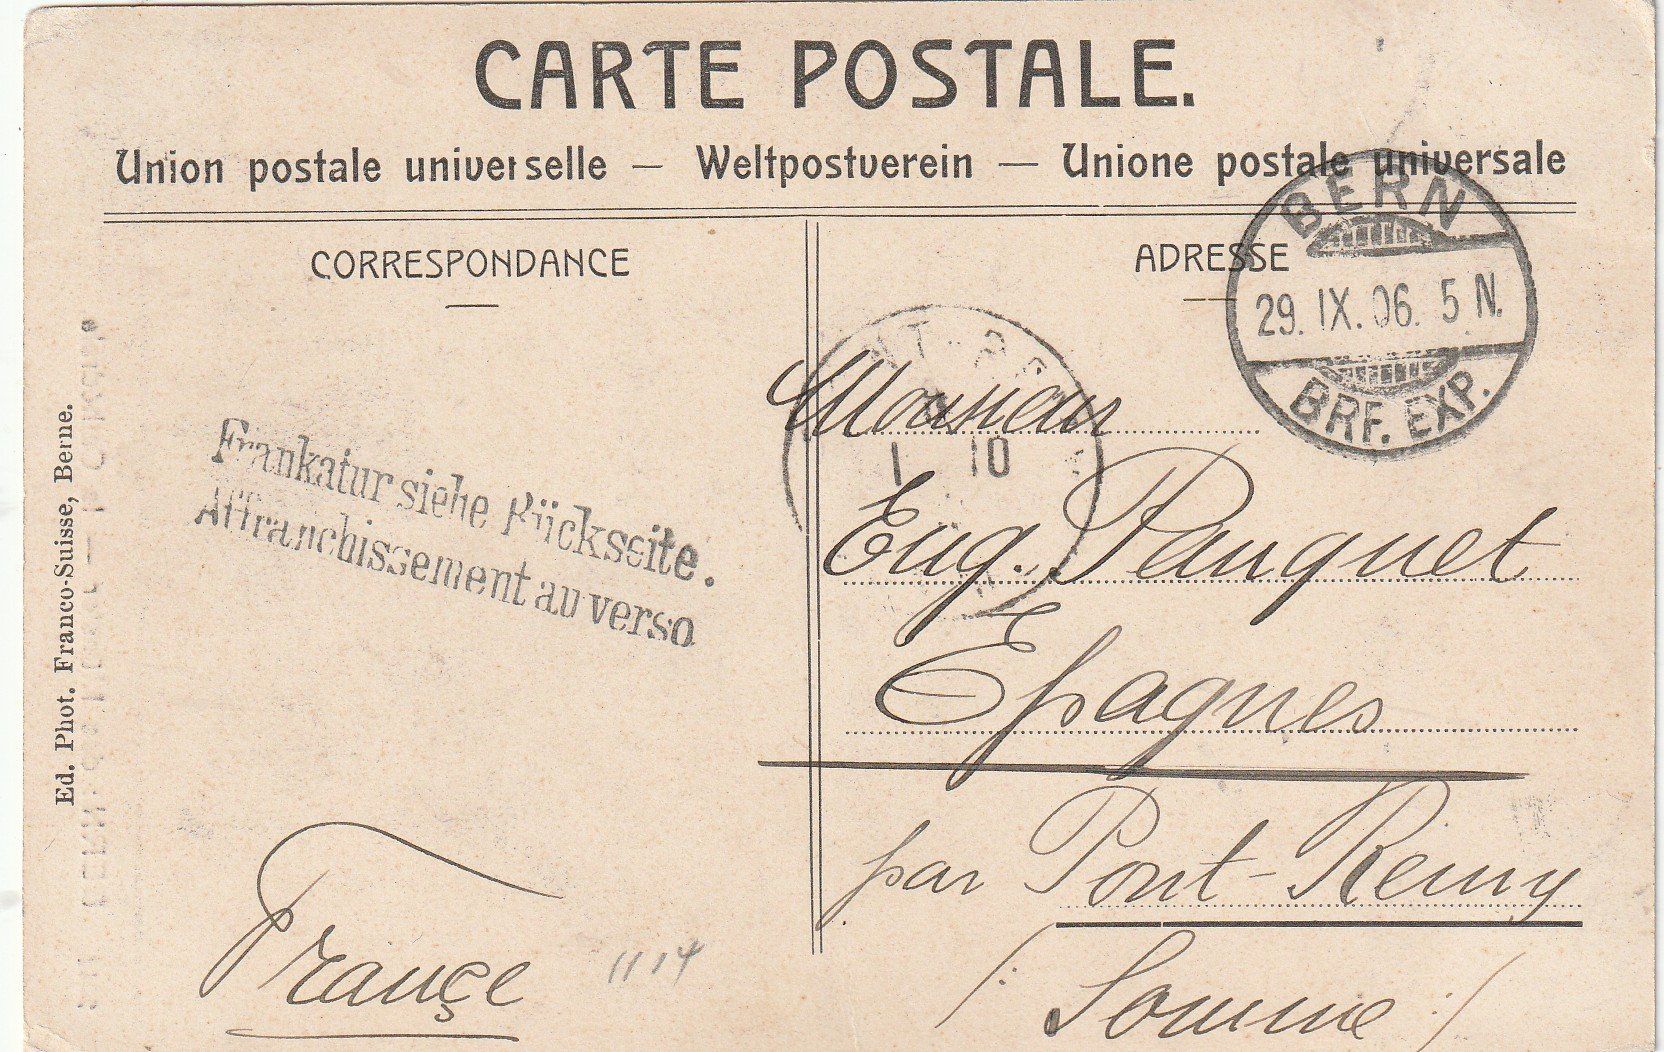 CARTE POSTALE.
Union postale universelle — Weltpostverein — Unione postale universale
CORRESPONDANCE
ADRESSE
BERN
29. IX. 06. 5 N.
BRF. EXP.
1 10
Frankatur siehe Rückseite.
Affranchissement au verso
Ed. Phot. Franco-Suisse, Berne.
Monsieur
Eug. Pauquet
Epagnes
par Pont-Remy
/: Somme :/
Françe
1114